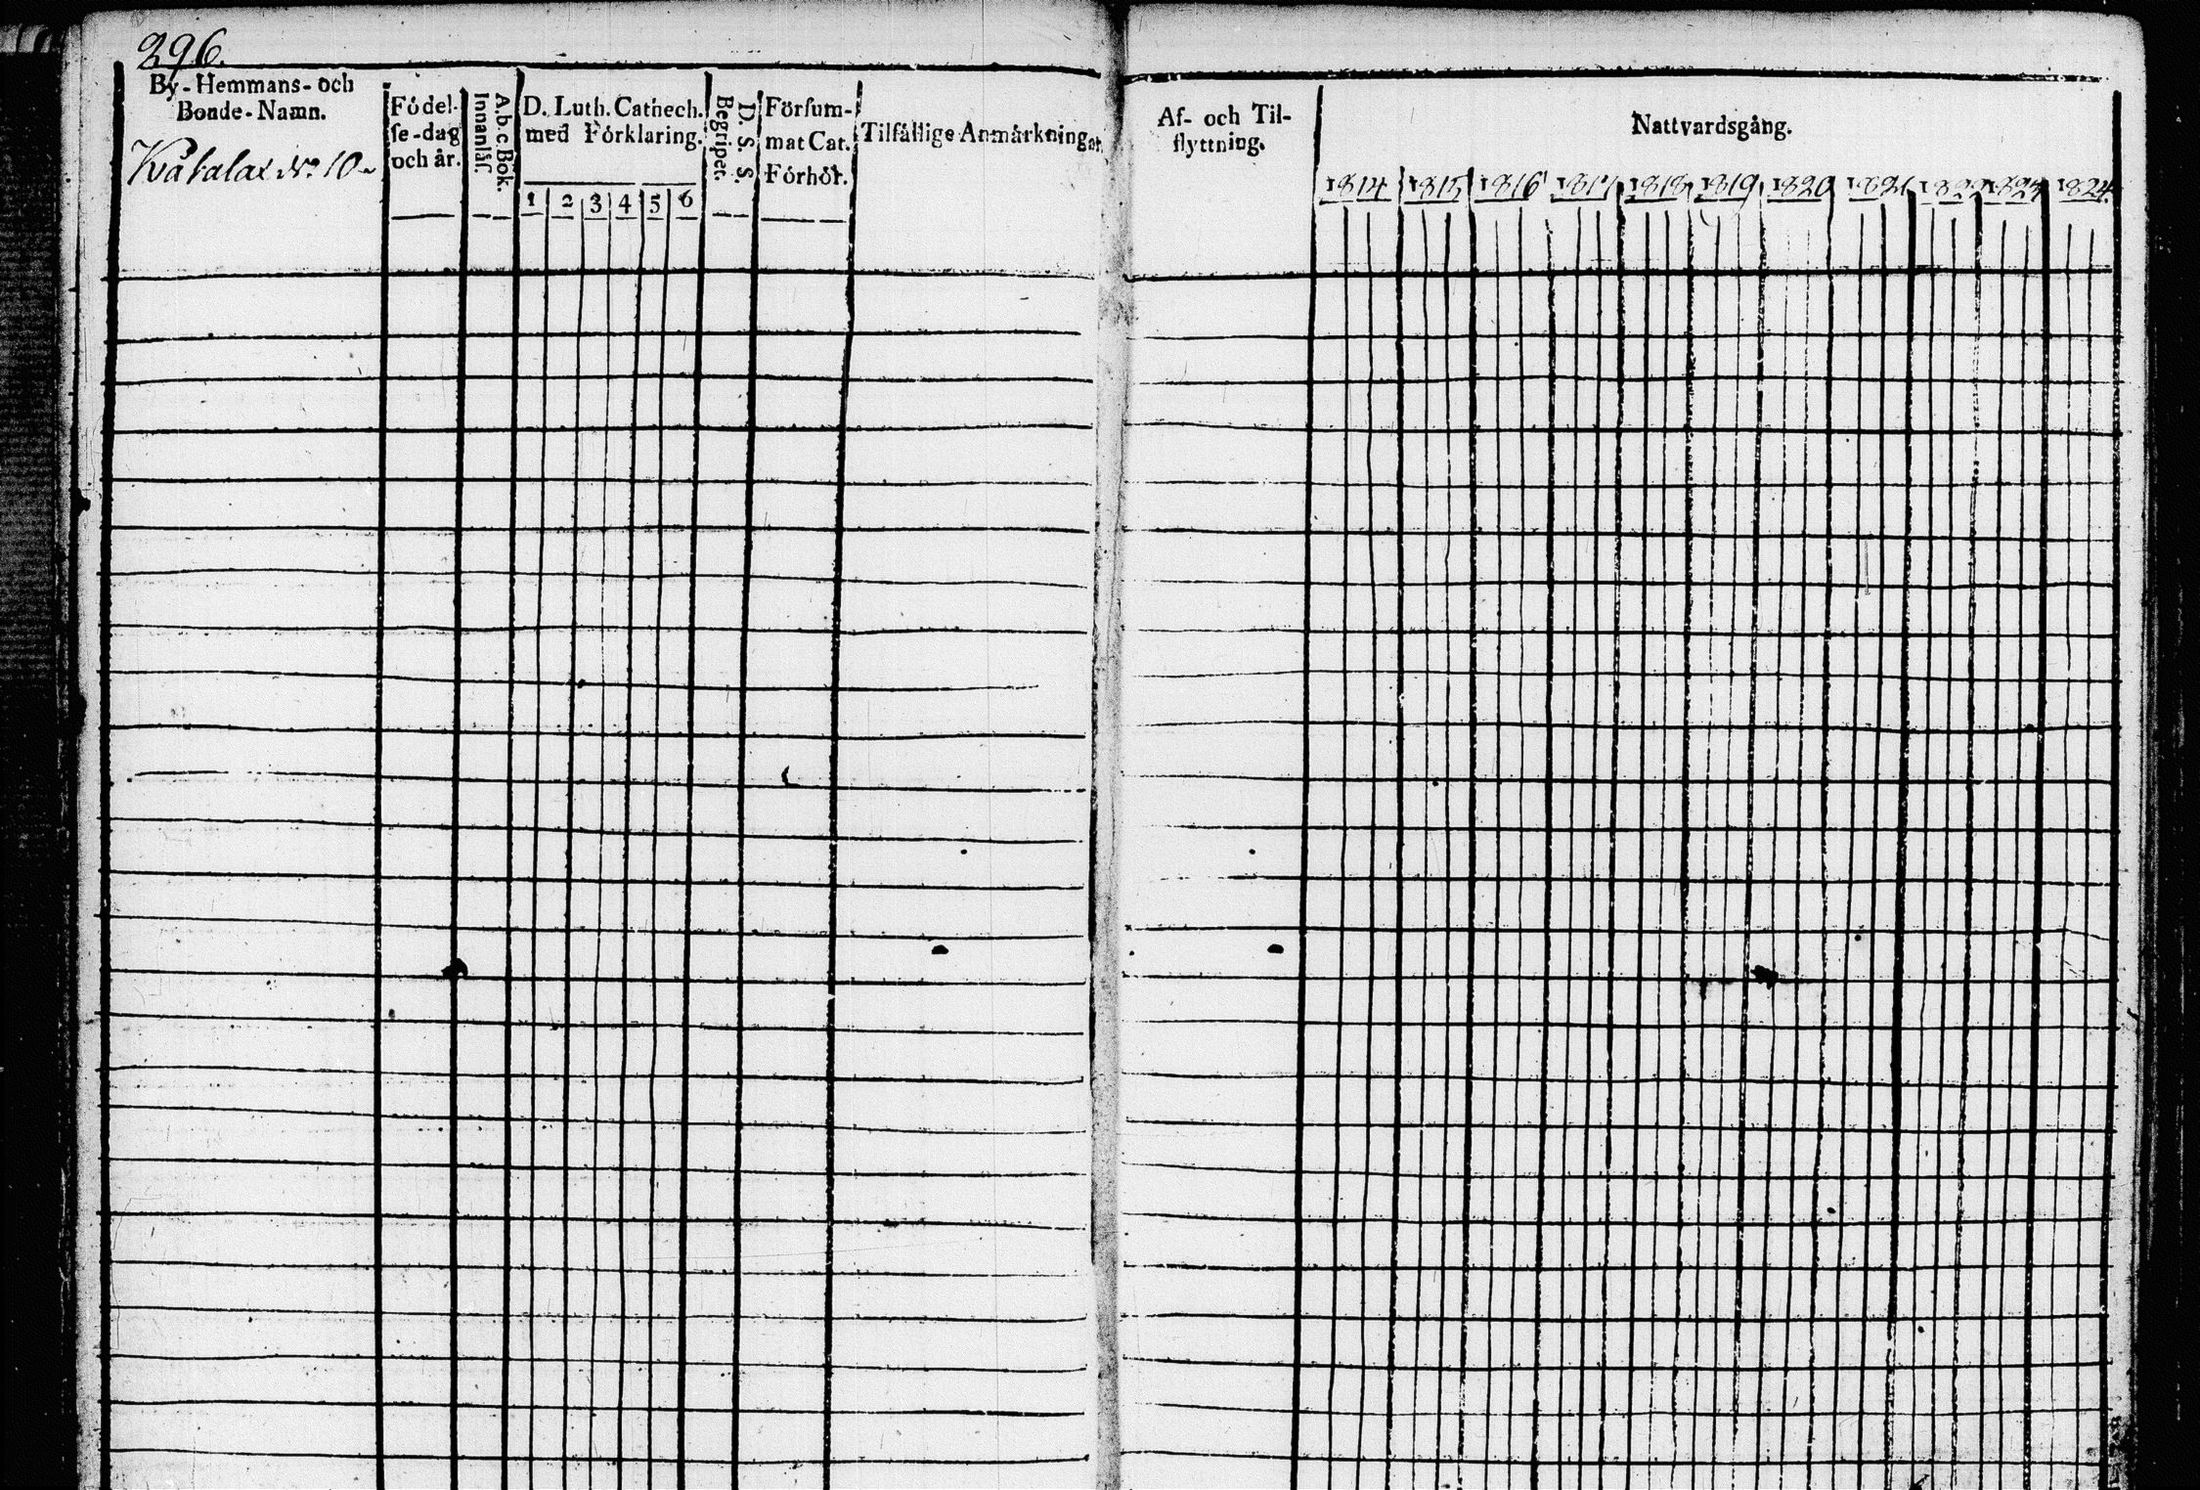 296.
By-Hemmans- och
Bonde-Namn.
Kåtalax No 10
Födel-
ſe-dag
och år.
A.b.c. Bok.
Innanläſ.
D. Luth. Cathech.
med Förklaring.
1 2 3 4 5 6
D. S. S.
Begriper.
Förſum-
mat Cat.
Förhör.
Tilfällige Anmärkningar
Af- och Til-
flyttning.
Nattvardsgång.
1814 1815 1816 1817 1818 1819 1820 1821 1822 1823 1824